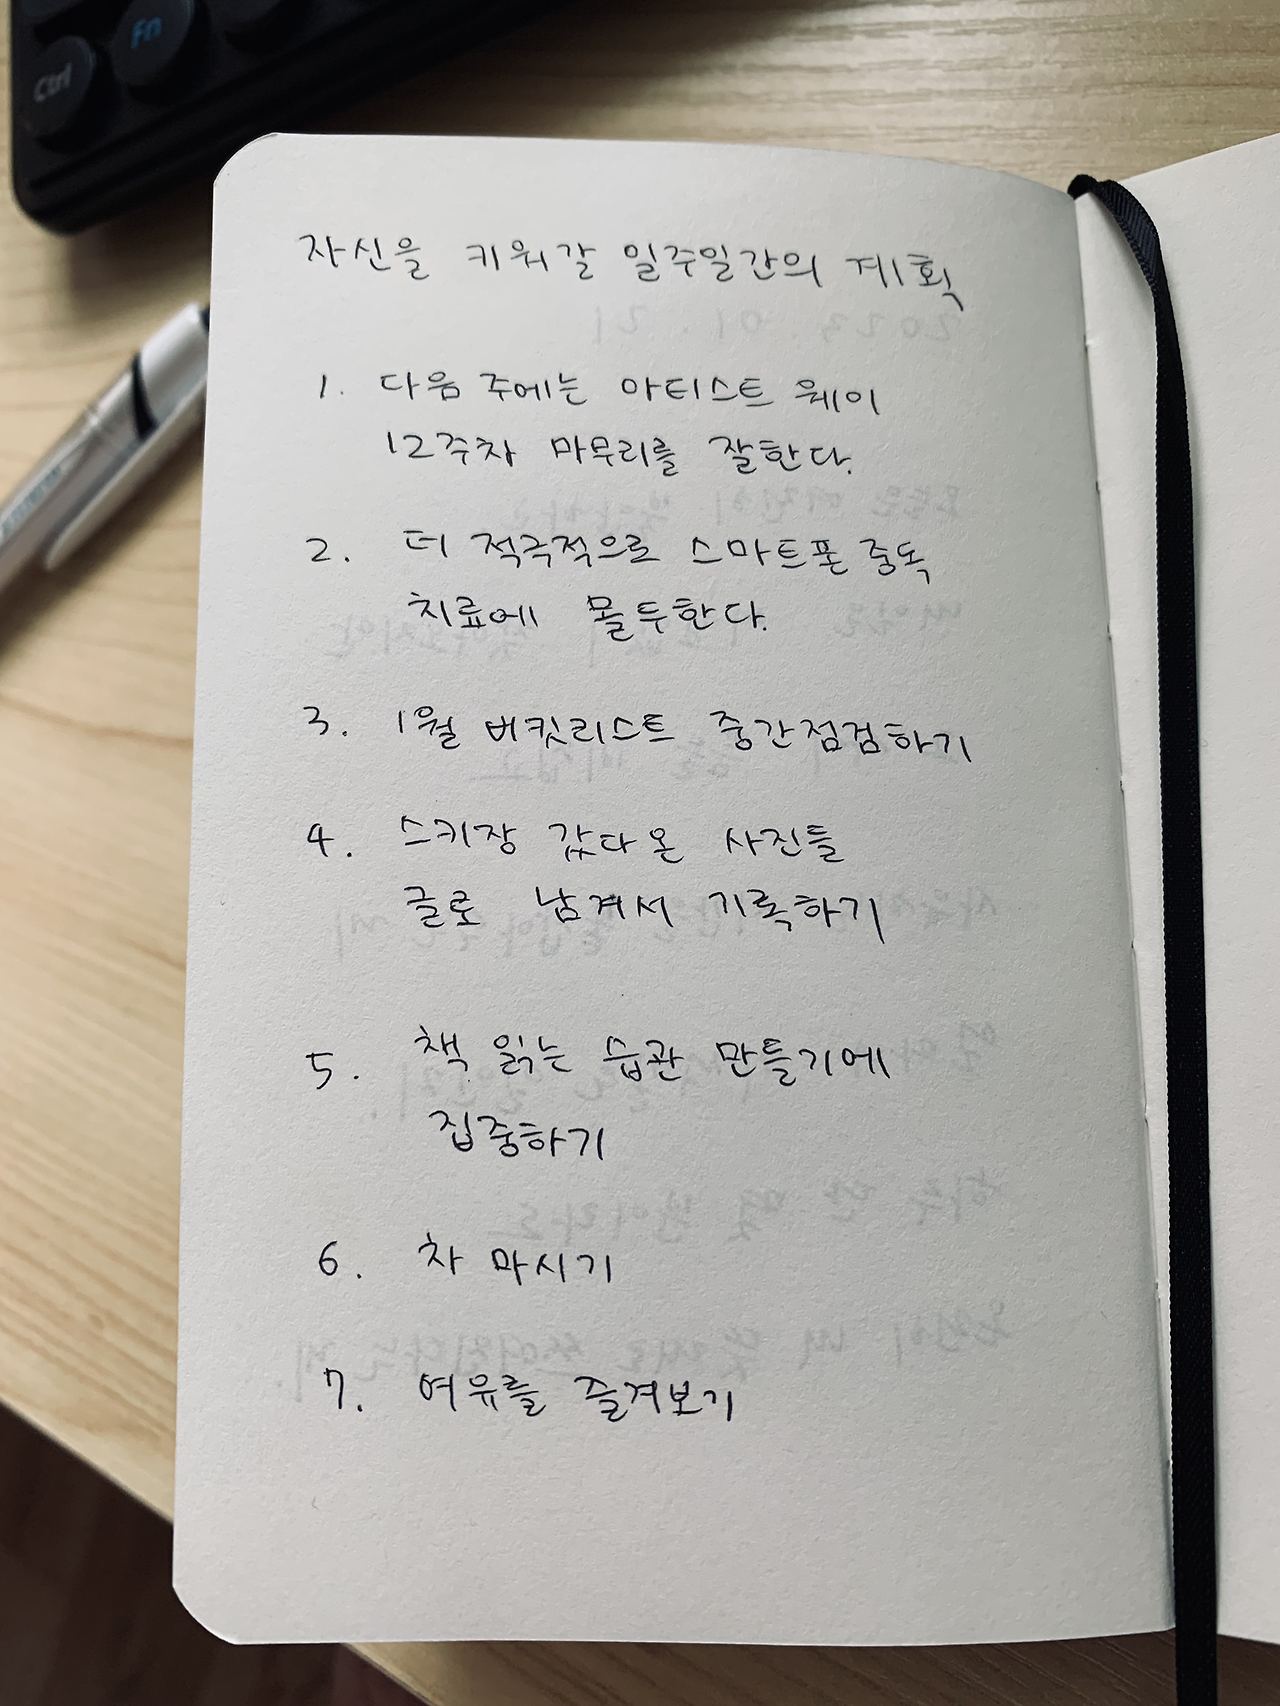 Fn
Ctrl
자신을 키워갈 일주일간의 계획
1. 다음 주에는 아티스트 웨이
12주차 마무리를 잘한다.
2. 더 적극적으로 스마트폰 중독
치료에 몰두한다.
3. 1월 버킷리스트 중간점검하기
4. 스키장 갔다온 사진들
글로 남겨서 기록하기
5. 책 읽는 습관 만들기에
집중하기
6. 차 마시기
7. 여유를 즐겨보기